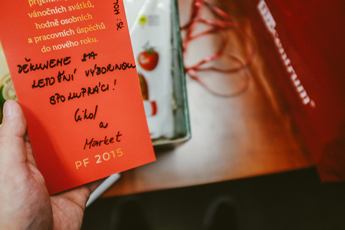 vánočních svátků,
hodně osobních
a pracovních úspěchů
do nového roku.
DĚKUJEME ZA
LETOŠNÍ VÝBORNOU
SPOLUPRÁCI!
a
Market
PF 2015